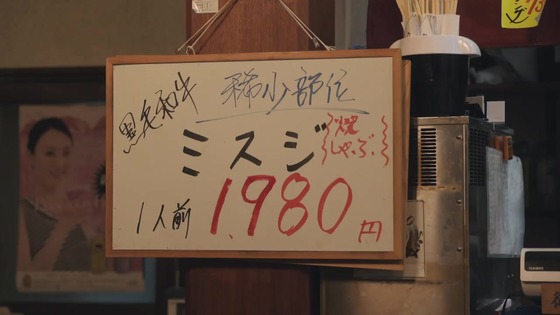 黒毛和牛
稀少部位
ミスジ
焼
しゃぶ
1人前 1,980円